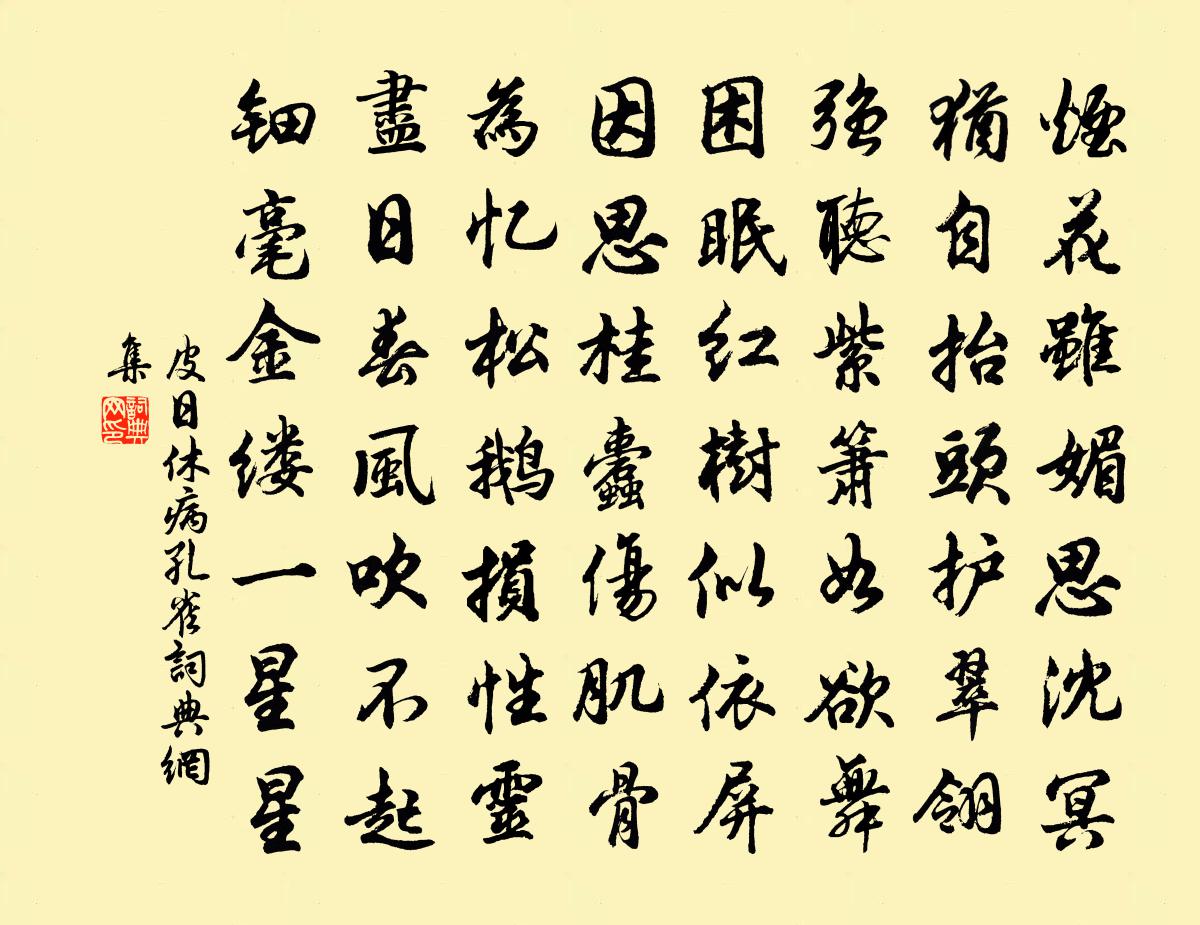 煙花雖媚思沈冥
猶自抬頭护翠翎
強聽紫簫如欲舞
困眠红樹似依屏
因思桂蠹傷肌骨
為忆松鹅損性靈
盡日春風吹不起
钿毫金缕一星星
皮日休病孔雀詞典網
集
詞典网印